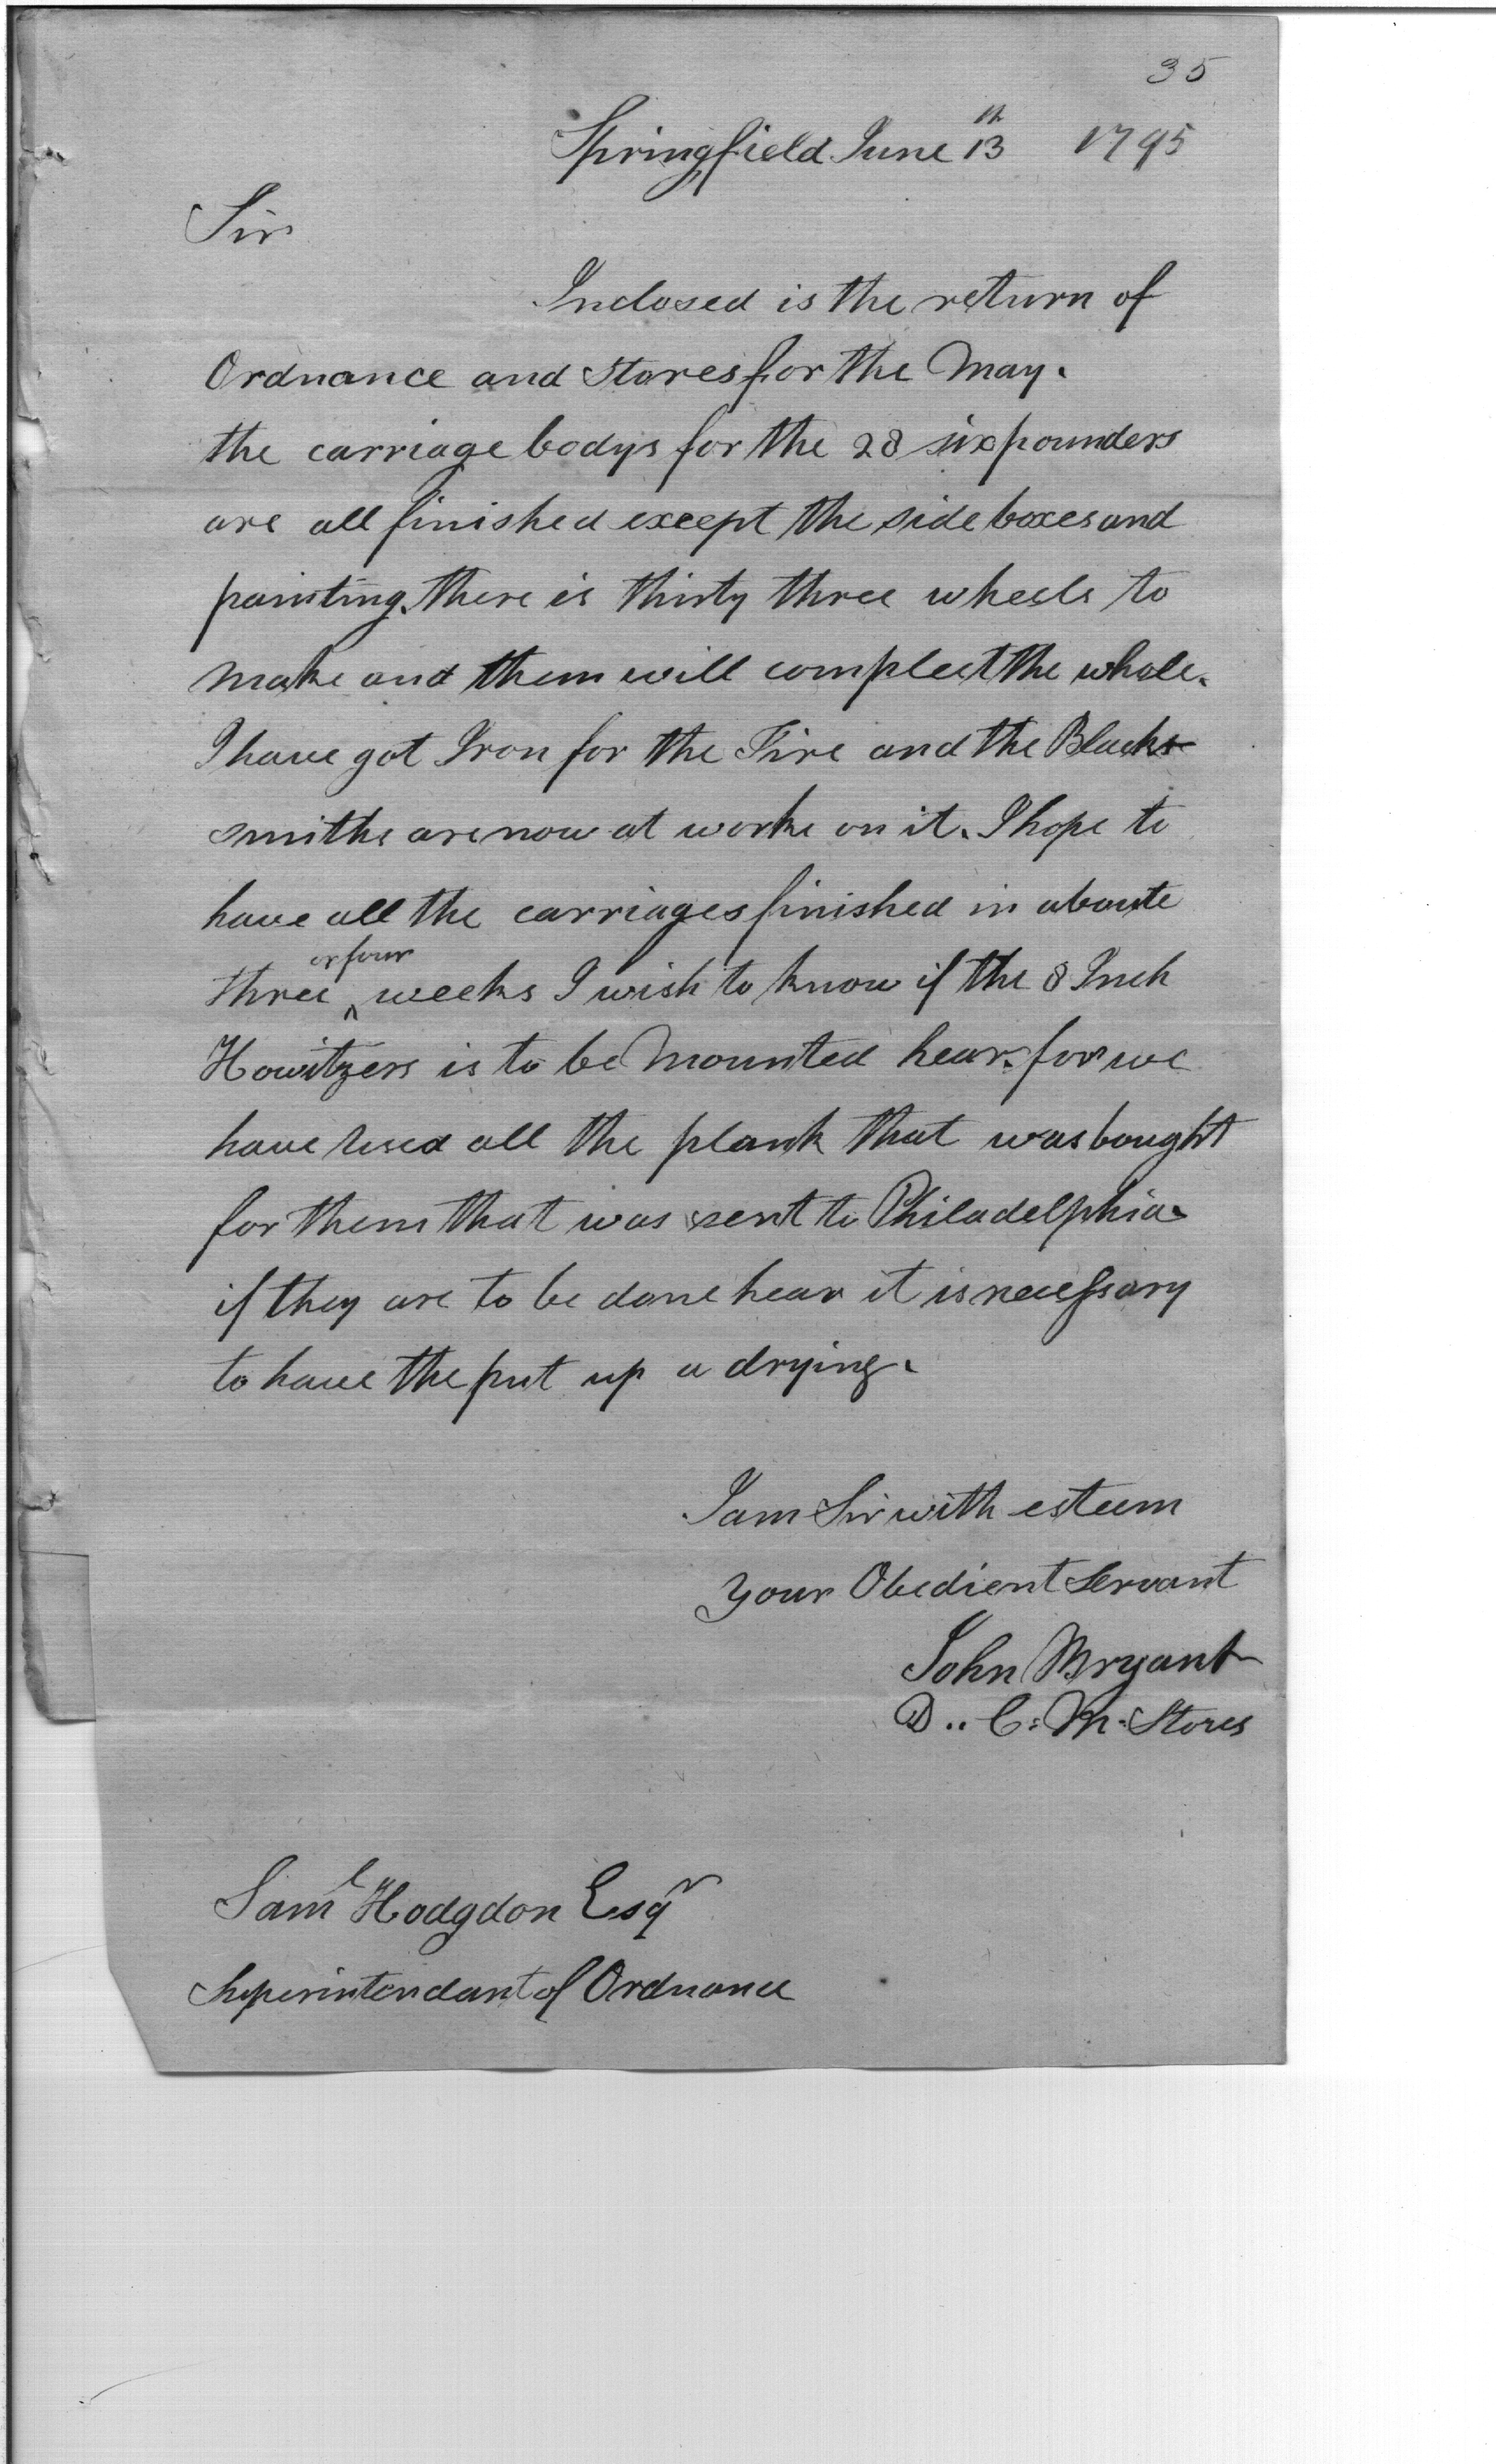 35
Springfield June 13th 1795
Sir
Inclosed is the return of
Ordnance and Stores for the May.
the carriage bodys for the 28 six pounders
are all finished except the side boxes and
painting. there is thirty three wheels to
make and them will compleet the whole.
I have got Iron for the Tire and the Black-
smiths are now at worke on it. I hope to
have all the carriages finished in aboute
three or four weeks I wish to know if the 8 Inch
Howitzers is to be Mounted hear. for we
have used all the plank that was bought
for them that was sent to Philadelphia.
if they are to be done hear it is necessary
to have the put up a drying.
I am Sir with esteem
your Obedient Servant
John Bryant
D.. C: M. Stores
Saml Hodgdon Esqr
Superintendant of Ordnance